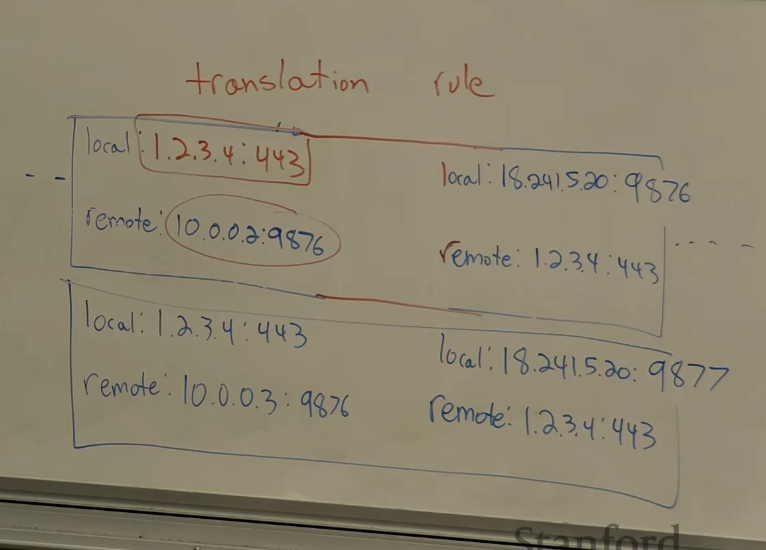 translation rule
local: 1.2.3.4:443
remote: 10.0.0.2:9876
local: 18.241.5.20:9876
remote: 1.2.3.4:443
local: 1.2.3.4:443
remote: 10.0.0.3:9876
local: 18.241.5.20:9877
remote: 1.2.3.4:443
Stanford